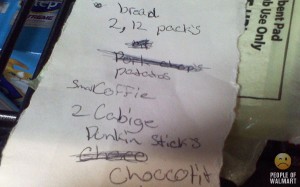 bread
2, 12 pack's
Pork chops
patatos
Small Coffie
2 Cabige
Dunkin Stick's
Cheese
Choccolit
bent Pad
b Use Only
PEOPLE OF
WALMART